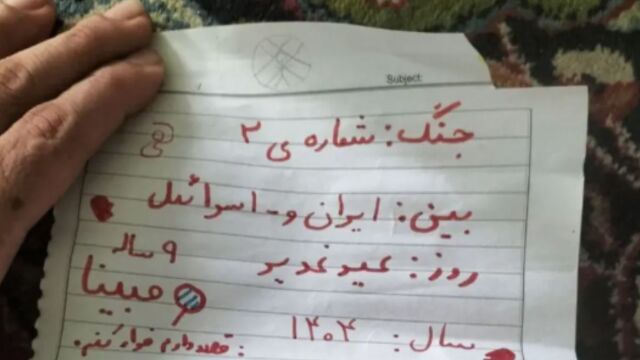 Subject:
جنگ: شماره ی ۲
بین: ایران و - اسرائیل
روز: عید غدیر
۹ ساله
مبینا
سال: ۱۴۰۴
قصد دارم فرار کنم.